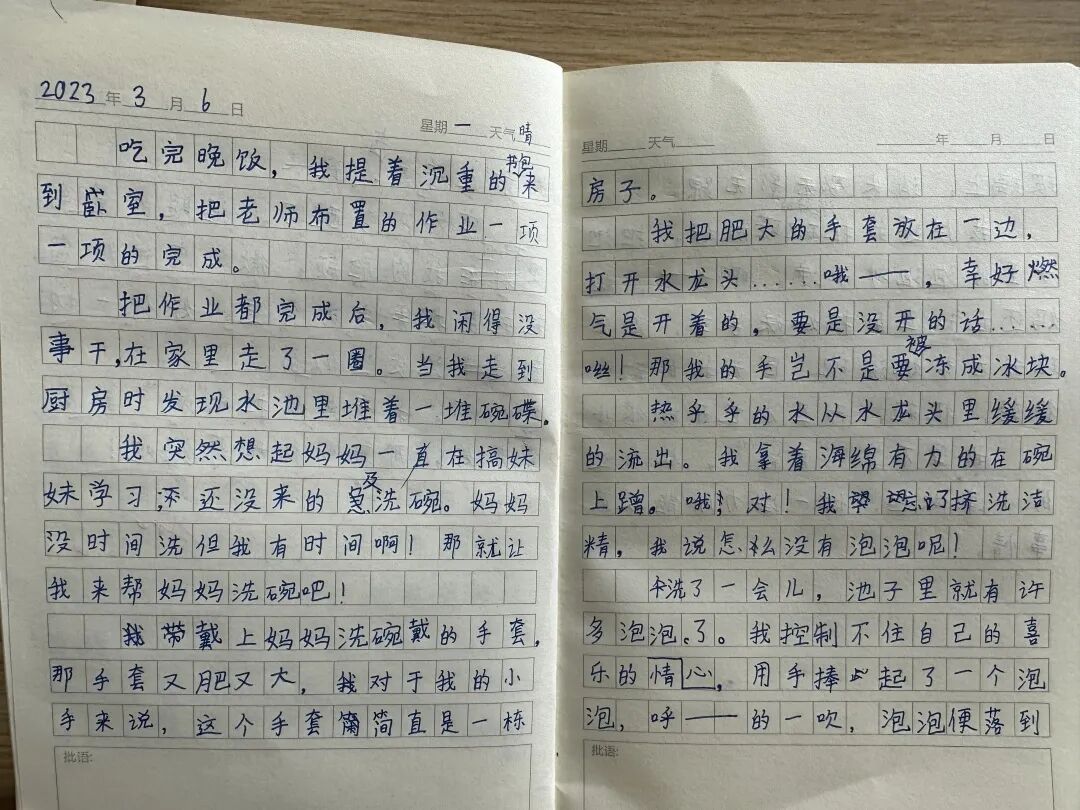 2023年3月6日
星期一 天气晴
吃完晚饭，我提着沉重的书包来
到卧室，把老师布置的作业一项
一项的完成。
把作业都完成后，我闲得没
事干，在家里走了一圈。当我走到
厨房时发现水池里堆着一堆碗碟。
我突然想起妈妈一直在搞妹
妹学习，还没来的及洗碗。妈妈
没时间洗但我有时间啊！那就让
我来帮妈妈洗碗吧！
我带戴上妈妈洗碗戴的手套，
那手套又肥又大，我对于我的小
手来说，这个手套简直是一栋
批语:
星期 天气 年 月 日
房子。
我把肥大的手套放在一边，
打开水龙头……哦——，幸好燃
气是开着的，要是没开的话……
咝！那我的手岂不是要被冻成冰块。
热乎乎的水从水龙头里缓缓
的流出。我拿着海绵有力的在碗
上蹭。哦！对！我忘了挤洗洁
精，我说怎么没有泡泡呢！
洗了一会儿，池子里就有许
多泡泡了。我控制不住自己的喜
乐的情心，用手捧起了一个泡
泡，呼——的一吹，泡泡便落到
批语: